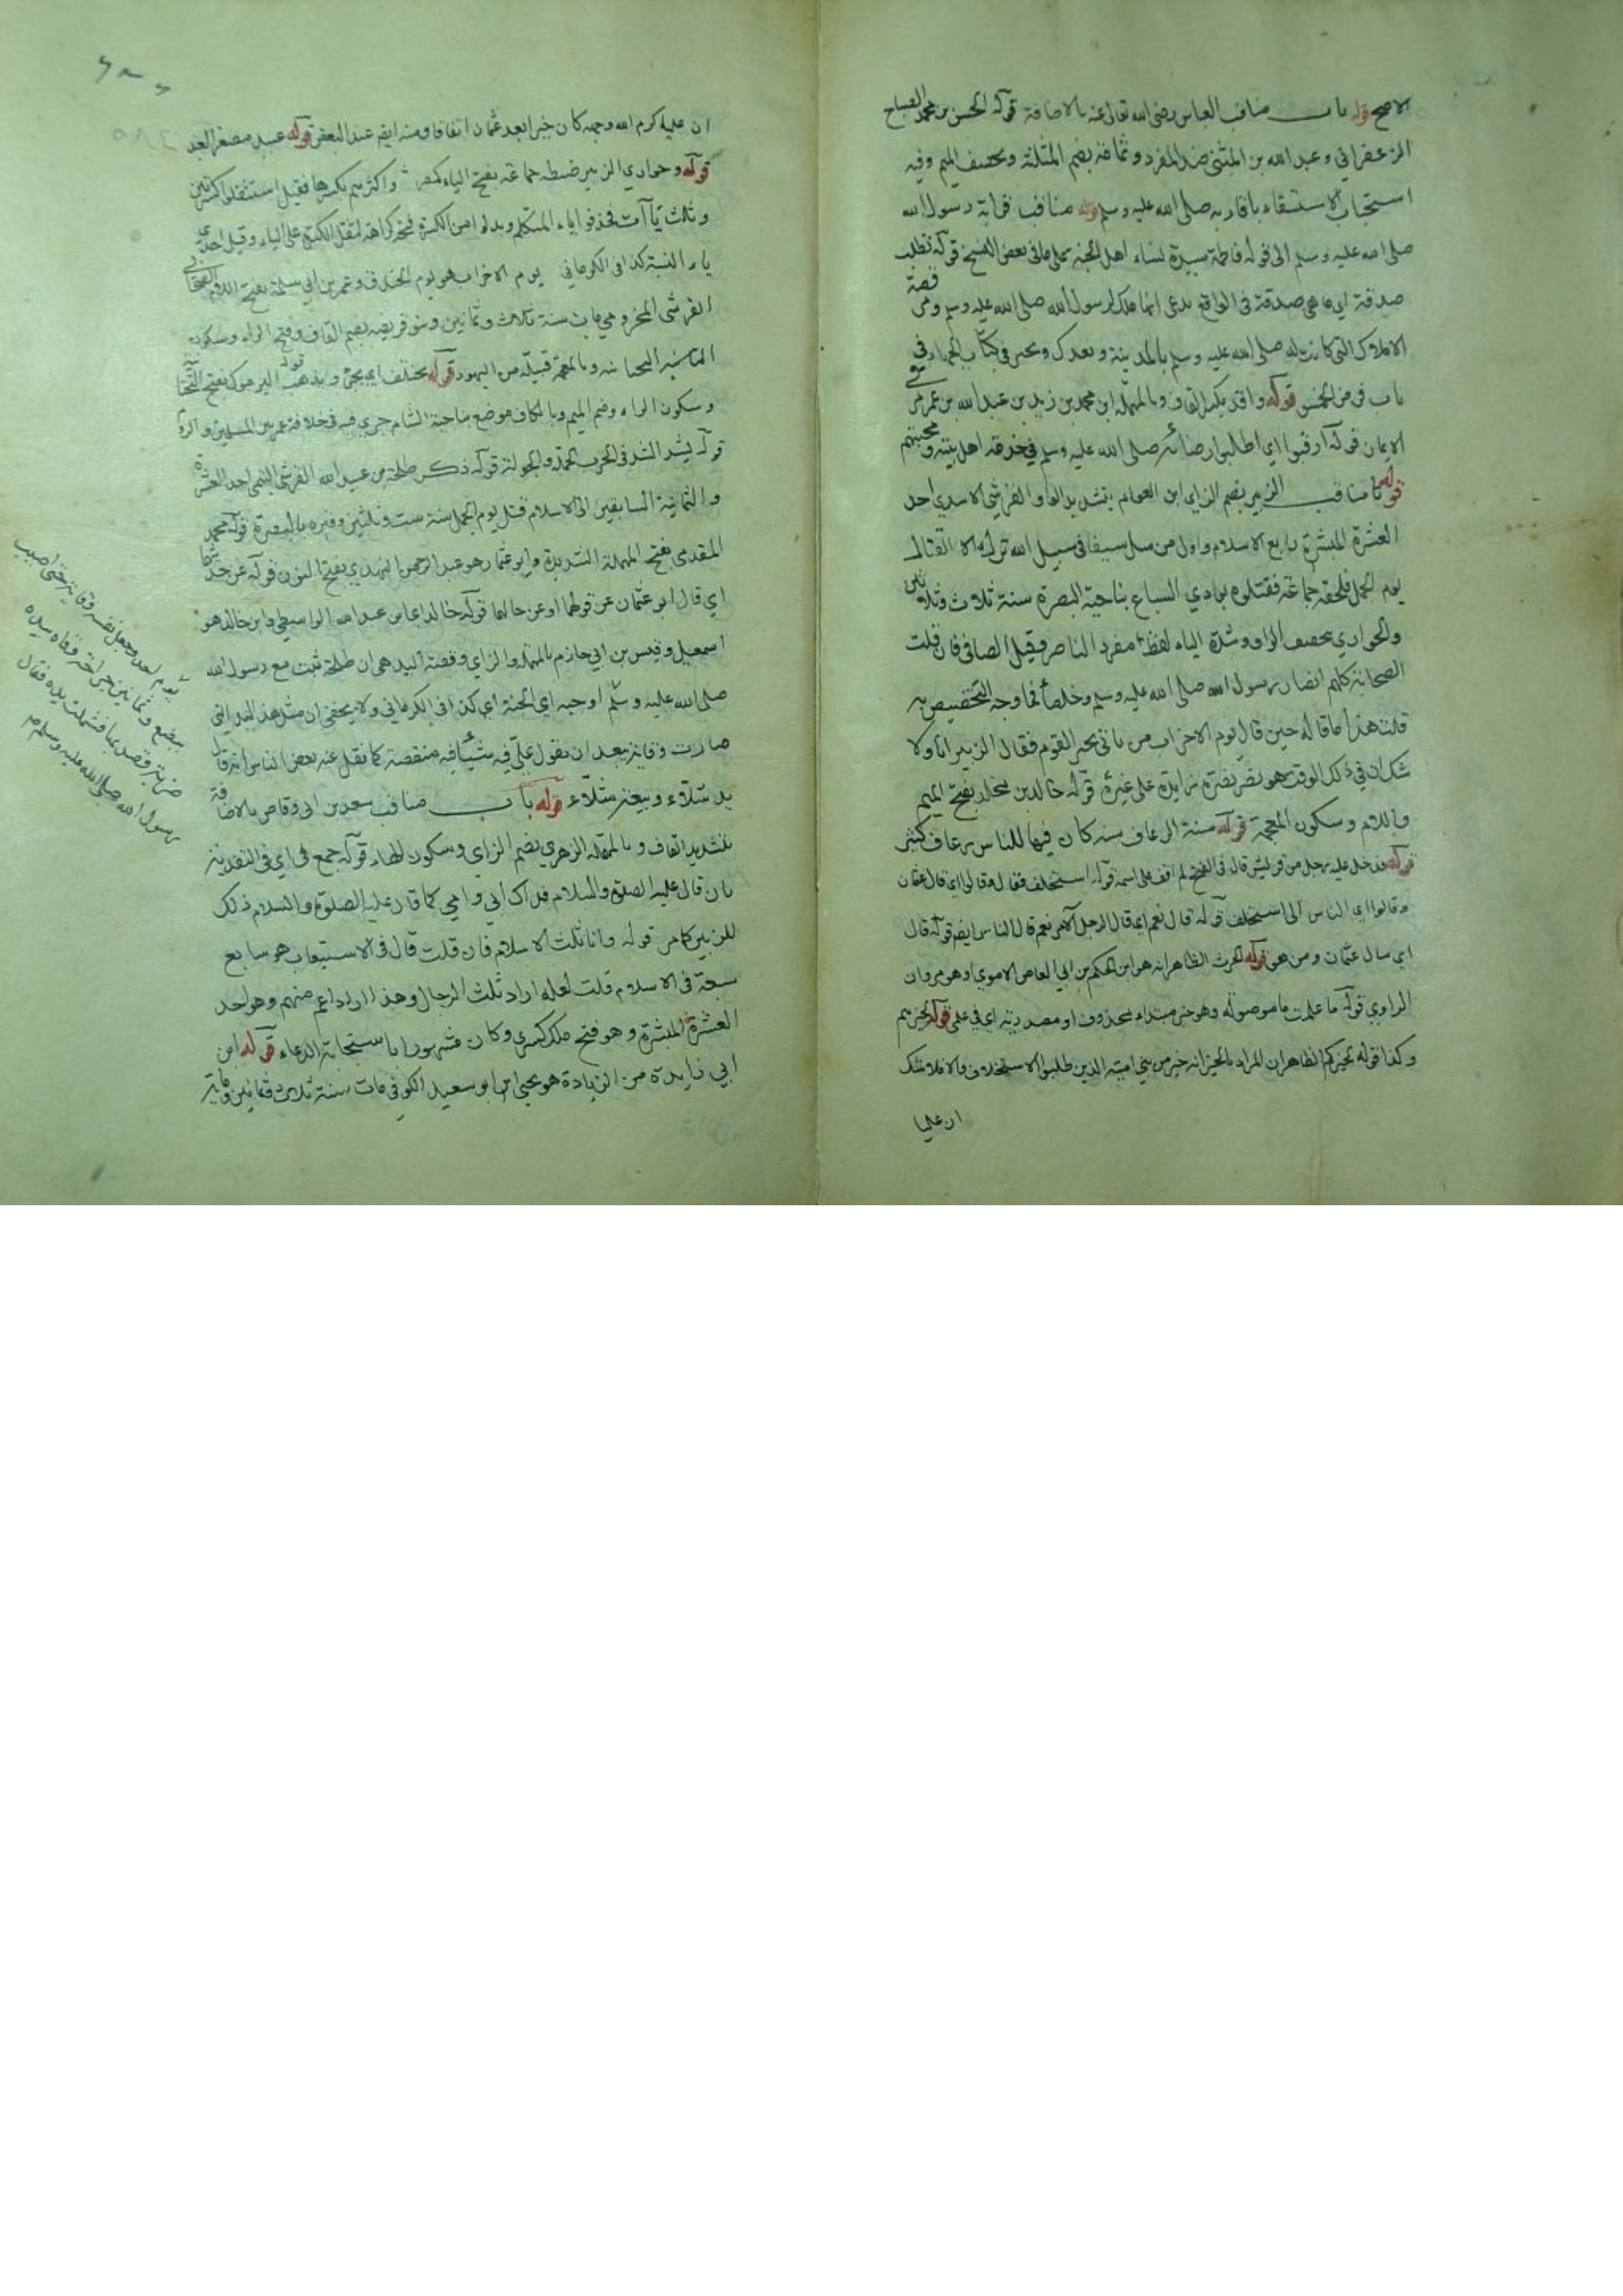 الاصح قوله باب مناقب العباس رضى الله تعالى عنه بالاضافة قوله الحسن بن محمد الصباح
الزعفراني وعبد الله بن المثنى ضد المفرد وثمامة بضم المثلثة وتخفيف الميم وفيه
استحباب الاستسقاء باقاربه صلى الله عليه وسلم قوله مناقب قرابة رسول الله
صلى الله عليه وسلم الى قوله فاطمة سيدة نساء اهل الجنة على ما فى بعض النسخ قوله تطلب
صدقة اي ما هى صدقة فى الواقع يدعى انها ملك لرسول الله صلى الله عليه وسلم
الاملاك التى كانت له صلى الله عليه وسلم بالمدينة وبفدك وخيبر فى كتاب الجهاد فى
باب فرض الخمس قوله واقد بكسر القاف وبالمهملة ابن محمد بن زيد بن عبد الله بن عمر مر فى
الايمان قوله ارقبوا اي اطلبوا رضائه صلى الله عليه وسلم فى اهل بيته ومحبتهم
قوله باب مناقب الزبير بضم الزاي ابن العوام بتشديد الواو القرشي الاسدي احد
العشرة المبشرة رابع الاسلام واول من سل سيفا فى سبيل الله ترك القتال
يوم الجمل فلحقه جماعة فقتلوه بوادي السباع بناحية البصرة سنة ثلاث وثلاثين
والحواري بتخفيف الواو وشدة الياء لفظ مفرد الناصر وقيل الصافى فان قلت
الصحابة كلهم انصار رسول الله صلى الله عليه وسلم وخلصائه فما وجه التخصيص به
قلت هذا ما قاله حين قال يوم الاحزاب من ياتى بخبر القوم فقال الزبير انا ولا
شك ان فى ذلك الوقت هو نصر نصرة زايدة على غيره قوله خالد بن مخلد بفتح الميم
واللام وسكون المعجمة قوله سنة الرعاف سنة كان فيها للناس رعاف كثير
قوله فدخل عليه رجل من قريش قال فى الفتح لم اقف على اسمه قوله استخلف فقال وقالوا اي قال عثمان
وقالوا اي الناس الى استخلف قوله قال نعم اي قال الرجل الآخر نعم قال الناس ايضا قوله قال
اي سال عثمان ومن هو قوله الحرث الظاهر انه هو ابن الحكم بن ابي العاص الاموي اخو مروان
الراوي قوله ما علمت ما موصولة وهو خبر مبتداء محذوف او مصدرية اي فى علمى قوله لخيرهم
وكذا قوله لخيركم الظاهر ان المراد بالخير انه خير من بني امية الذين طلبوا الاستخلاف والا فلا شك
ان عليا
ان عليا كرم الله وجهه كان خيرا بعد عثمان اتفاقا ومنه ايضا عند البعض قوله عبيد مصغر العبد
قوله وحواري الزبير ضبطه جماعة بفتح الياء واكثرهم بكسرها فقيل استثقلوا كسرتين
وثلاث ياآت فحذفوا ياء المتكلم وبدلوا من الكسرة فتحة كراهة لثقل الكسرة على الياء وقيل احدى
ياء النسبة كذا فى الكرماني يوم الاحزاب هو يوم الخندق وعمر بن ابي سلمة بفتح اللام الصحابي
القرشى المخزومي مات سنة ثلاث وثمانين وبنو قريظة بضم القاف وفتح الراء وسكون
التحتانية وبالمعجمة قبيلة من اليهود قوله يختلف اي يجئ ويذهب قوله اليرموك بفتح التحتانية
وسكون الراء وضم الميم وبالكاف موضع بناحية الشام جرى فيه فى خلافة عمر بين المسلمين والروم
قوله يشد الشد فى الحرب الحملة والجولة قوله ذكر طلحة بن عبيد الله القرشى التيمى احد العشرة
والثمانية السابقين الى الاسلام قتل يوم الجمل سنة ست وثلثين وقبره بالبصرة قوله محمد
المقدمى بفتح المهملة الشديدة وابو عثمان هو عبد الرحمن النهدي بفتح النون قوله عن حديثهما
اي قال ابو عثمان عن قولهما او عن حالهما قوله خالد اي ابن عبد الله الواسطي وابن خالد هو
اسمعيل وقيس بن ابي حازم بالمهملة والزاي وقصة اليد هى ان طلحة ثبت مع رسول الله
صلى الله عليه وسلم اوجبه اي الجنة اي كذا فى الكرماني ولا يخفى ان مثل هذه اليد التى
صارت وقاية بعد ان نقول على فيه شيئا فيه منقصة كما نقل عنه بعض الناس انه قال
يد شلاء وبيعة شلاء قوله باب مناقب سعد بن ابى وقاص بالاضافة
بتشديد القاف وبالمهملة الزهري بضم الزاي وسكون الهاء قوله جمع لى اي فى التفدية
بان قال عليه الصلوة والسلام فداك ابي وامي كما قال عليه الصلوة والسلام ذلك
للزبير كما مر قوله وانا ثلث الاسلام فان قلت قال فى الاستيعاب هو سابع
سبعة فى الاسلام قلت لعله اراد ثلث الرجال وهذا اراد اعم منهم وهو احد
العشرة المبشرة وهو فتح ملك كسرى وكان مشهورا باستجابة الدعاء قوله ابن
ابي زايدة من الزيادة هو يحيى ابو سعيد الكوفى مات سنة ثلاث وثمانين ومائة
يوم احد وجعل نفسه وقاية حتى اصيب
ببضع وثمانين جراحة وقاه بيده
ضربة قصد بها فشلت يده فقال
رسول الله صلى الله عليه وسلم